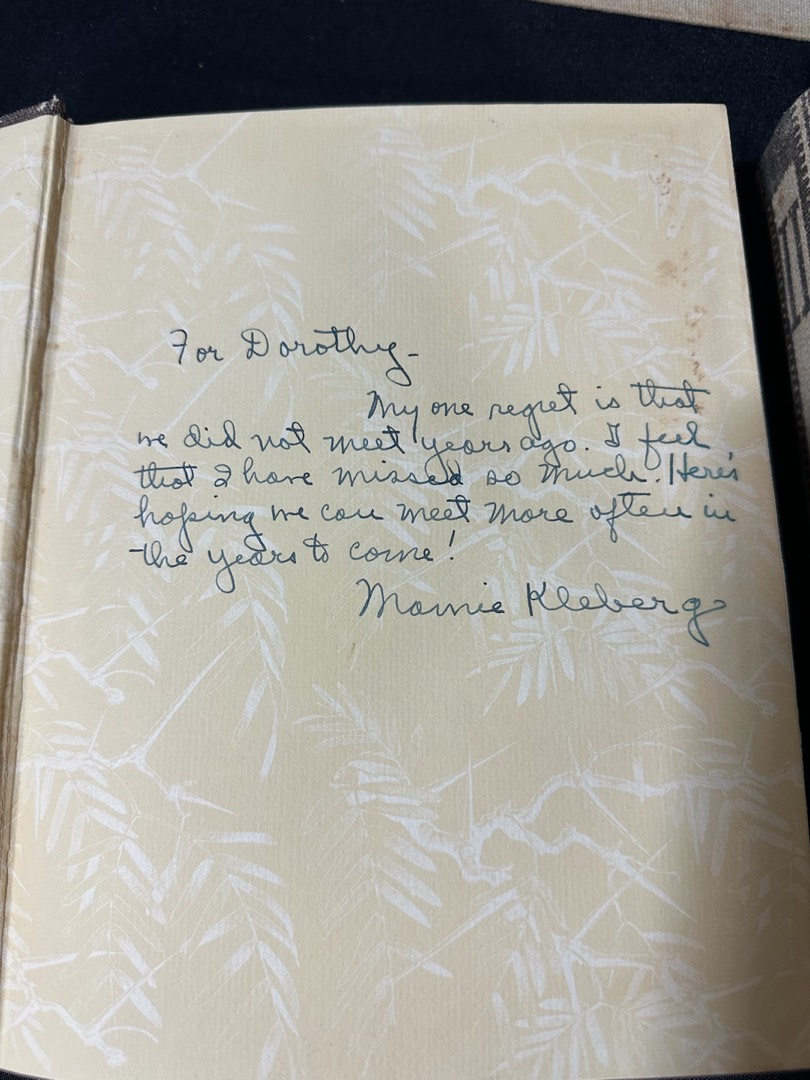 For Dorothy-
My one regret is that
we did not meet years ago. I feel
that I have missed so much. Here's
hoping we can meet more often in
the years to come!
Mamie Kleberg